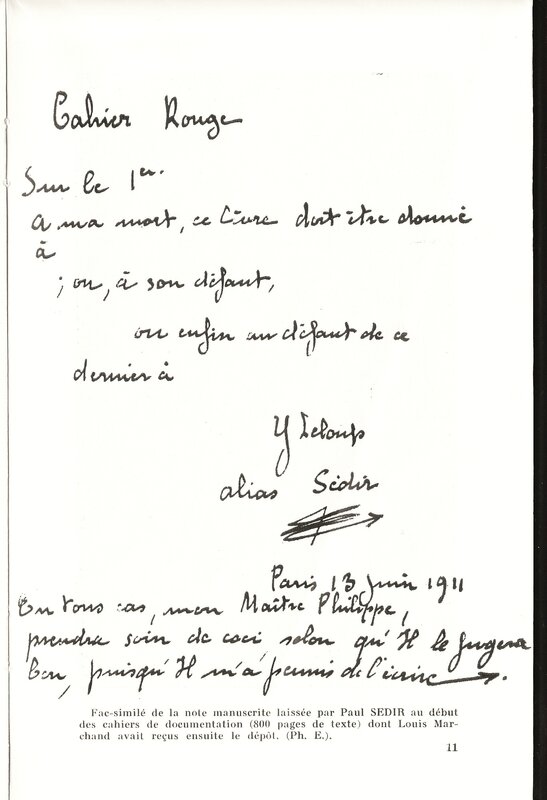 Cahier Rouge
Sur le 1er.
A ma mort, ce Livre doit être donné
à
; ou, à son défaut,
ou enfin au défaut de ce
dernier à
Y Leloup
alias Sédir
Paris 13 Juin 1911
En tous cas, mon Maître Philippe,
prendra soin de ceci, selon qu'Il le jugera
bon, puisqu'Il m'a permis de l'écrire.
Fac-similé de la note manuscrite laissée par Paul SEDIR au début
des cahiers de documentation (800 pages de texte) dont Louis Mar-
chand avait reçus ensuite le dépôt. (Ph. E.).
11